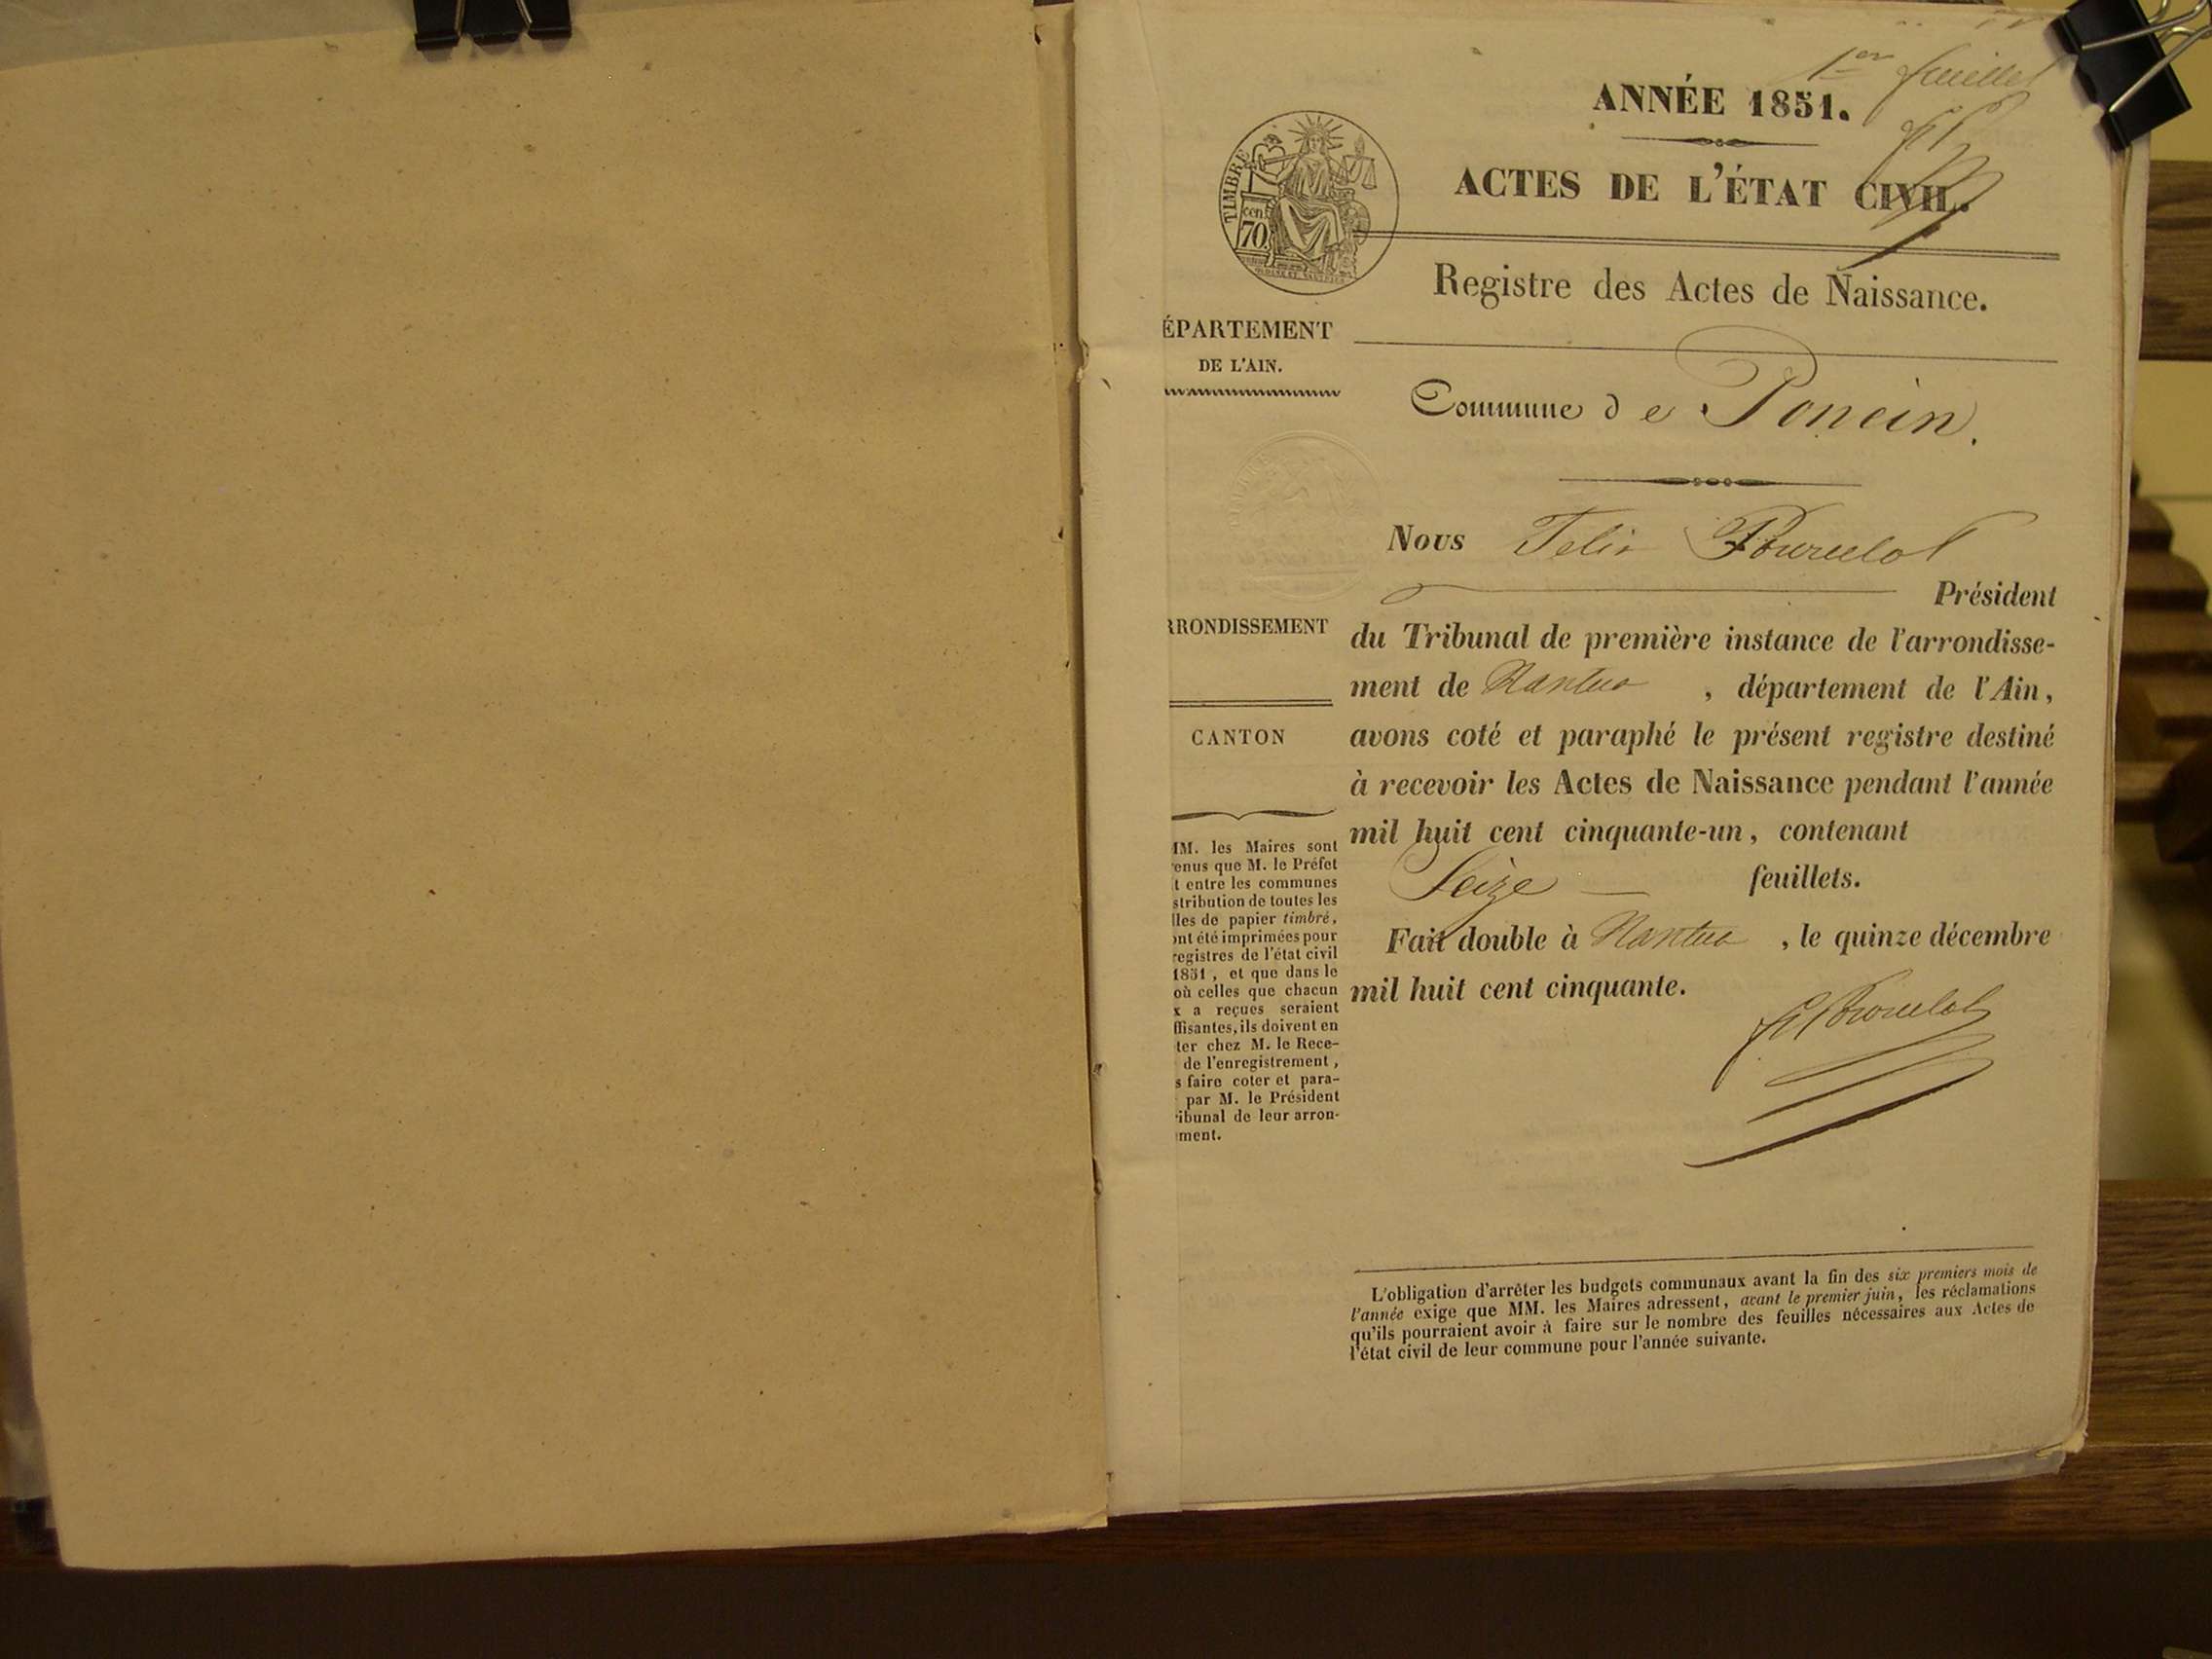 1er feuillet
ANNÉE 1851.
ACTES DE L'ÉTAT CIVIL.
TIMBRE
cen.
70
Registre des Actes de Naissance.
ÉPARTEMENT
DE L'AIN.
Commune de Poncin.
Nous Felix Pourcelot
Président
RRONDISSEMENT
du Tribunal de première instance de l'arrondisse-
ment de Nantua , département de l'Ain,
CANTON
avons coté et paraphé le présent registre destiné
à recevoir les Actes de Naissance pendant l'année
mil huit cent cinquante-un, contenant
Seize — feuillets.
Fait double à Nantua , le quinze décembre
mil huit cent cinquante.
MM. les Maires sont
enus que M. le Préfet
t entre les communes
stribution de toutes les
lles de papier timbré,
ont été imprimées pour
registres de l'état civil
1851, et que dans le
où celles que chacun
x a reçues seraient
ffisantes, ils doivent en
ter chez M. le Rece-
de l'enregistrement,
s faire coter et para-
par M. le Président
ribunal de leur arron-
ment.
L'obligation d'arrêter les budgets communaux avant la fin des six premiers mois de
l'année exige que MM. les Maires adressent, avant le premier juin, les réclamations
qu'ils pourraient avoir à faire sur le nombre des feuilles nécessaires aux Actes de
l'état civil de leur commune pour l'année suivante.